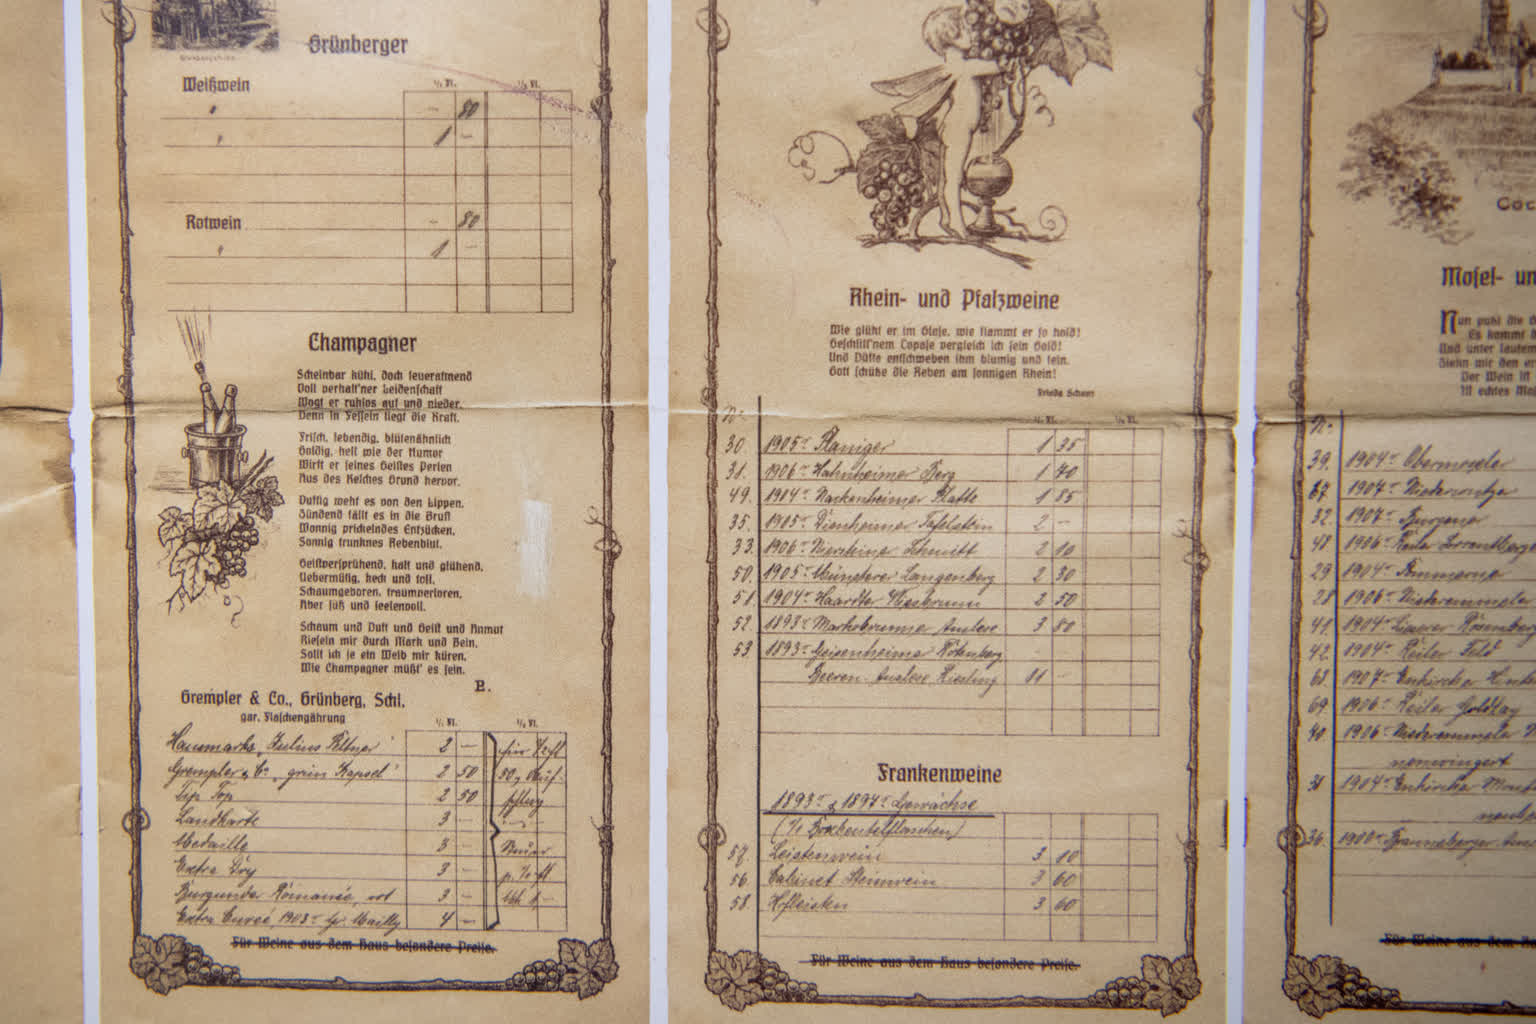 Grünberger
Weißwein
1/1 Fl. 1/2 Fl.
" – 80
" 1 –
Rotwein – 80
" 1 –
Champagner
Scheinbar kühl, doch feueratmend
Voll verhalt'ner Leidenschaft
Wogt er ruhlos auf und nieder,
Denn in Fesseln liegt die Kraft.
Frisch, lebendig, blütenähnlich
Goldig, hell wie der Humor
Wirft er seines Geistes Perlen
Aus des Kelches Grund hervor.
Duftig weht es von den Lippen,
Zündend fällt es in die Brust
Wonnig prickelndes Entzücken,
Sonnig trunknes Rebenblut.
Geistversprühend, kalt und glühend,
Uebermütig, keck und toll,
Schaumgeboren, traumverloren,
Aber süß und seelenvoll.
Schaum und Duft und Geist und Anmut
Rieseln mir durch Mark und Bein,
Sollt ich je ein Weib mir küren,
Wie Champagner müßt' es sein.
P.
Grempler & Co., Grünberg, Schl.
gar. Flaschengährung
1/1 Fl. 1/2 Fl.
Hausmarke „Julius 2 –
Grempler & Co „grün Kapsel" 2 50
Tip Top 2 50
Landkarte 3 –
Medaille 3 –
Extra Dry 3 –
Burgunder Romanée, rot 3 –
Extra Cuvée 1903er Gr. Mailly 4 –
für 1/2 Fl.
50 Auf-
schlag
Steuer
p. 1/1 Fl.
Mk 1,–
Für Weine aus dem Haus besondere Preise.
Rhein- und Pfalzweine
Wie glüht er im Glase, wie flammt er so hold!
Geschliff'nem Topase vergleich ich sein Gold!
Und Düfte entschweben ihm blumig und fein.
Gott schütze die Reben am sonnigen Rhein!
Frieda Schanz
No. 1/1 Fl. 1/2 Fl.
30. 1905er Planiger 1 35
31. 1906er Hahnheimer Berg 1 70
49. 1904er Nackenheimer Platte 1 85
35. 1905er Dienheimer Tafelstein 2 –
33. 1906er Niersteiner Schmitt 2 10
50. 1905er Münsterer Langenberg 2 30
51. 1904er Haardter 2 50
52. 1893er Markobrunner Auslese 3 80
53. 1893er Geisenheimer Rotenberg
Beeren-Auslese, Riesling 11 –
Frankenweine
1893er & 1897er Gewächse
(1/1 Bocksbeutelflaschen)
57. Leistenwein 3 10
56. Cabinet Steinwein 3 60
58. Hofleisten 3 60
Für Weine aus dem Haus besondere Preise.
Coc
Mosel- un
Nun
Es kommt
Und unter lautem
Stehn mir den er
Der Wein ist
Ist echtes Mo
No.
39. 1904er Obermoseler
67. 1907er
32. 1907er Burgener
48. 1906er
29. 1904er Pommerner
28. 1906er Niederemmeler
41. 1904er Lieserer Rosenberg
42. 1904er Reiler Feld
63. 1907er Enkircher
69. 1906er Reiler Goldlay
40. 1906er Niederemmeler
31. 1904er Enkircher
36. 1900er Brauneberger
Für Weine aus dem H